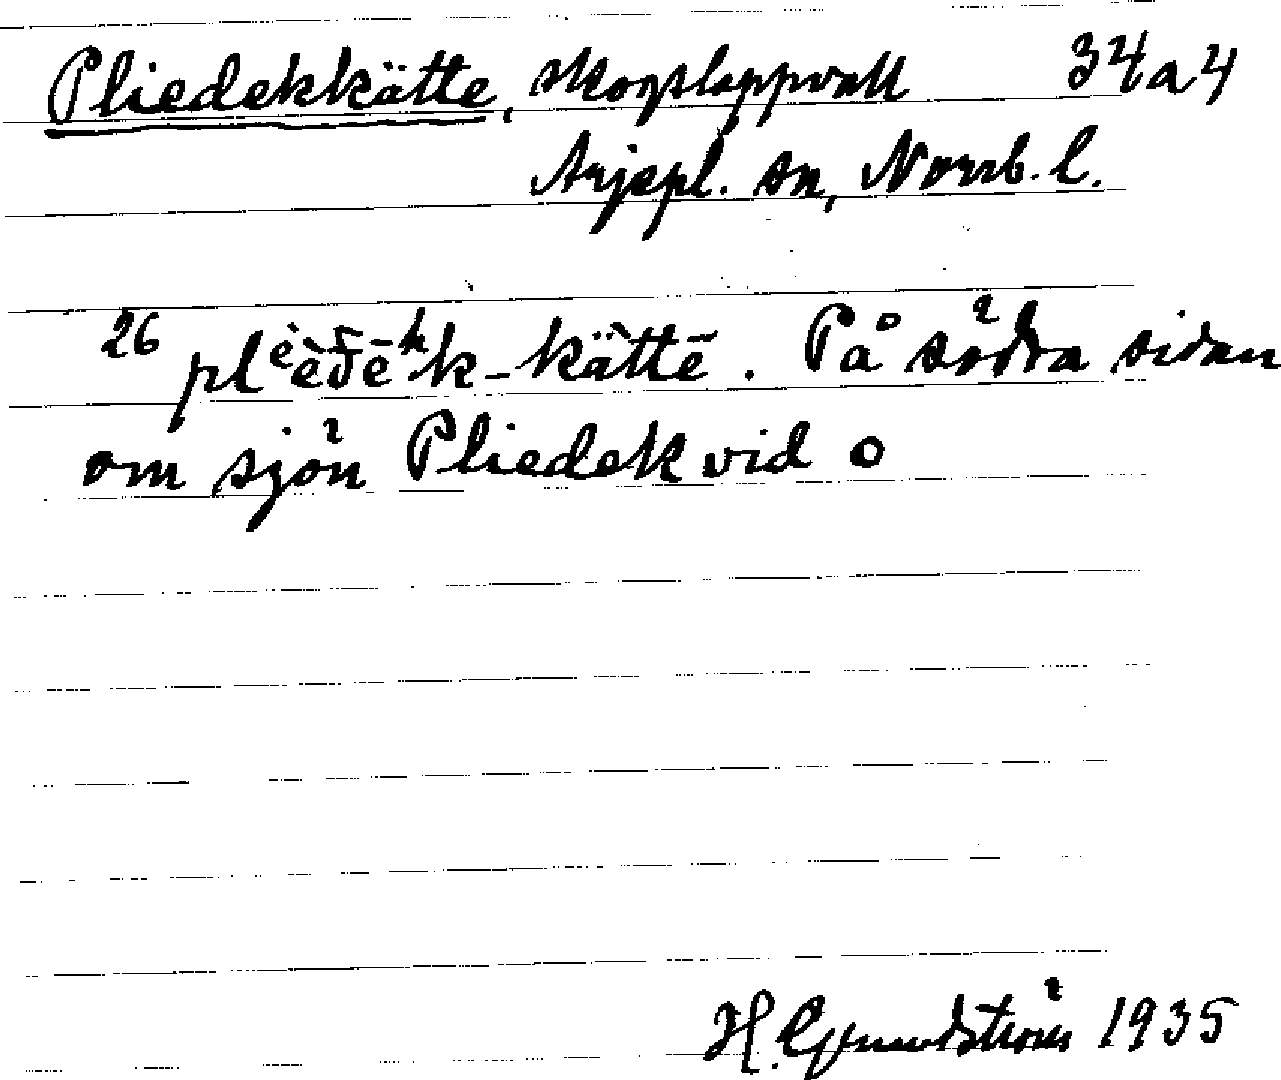 Pliedekkätte, skogslappvall 34a4
Arjepl. sn, Norrb. l.
26 plᵉèđēʰk-kättē. På södra sidan
om sjön Pliedek vid o
H. Grundström 1935